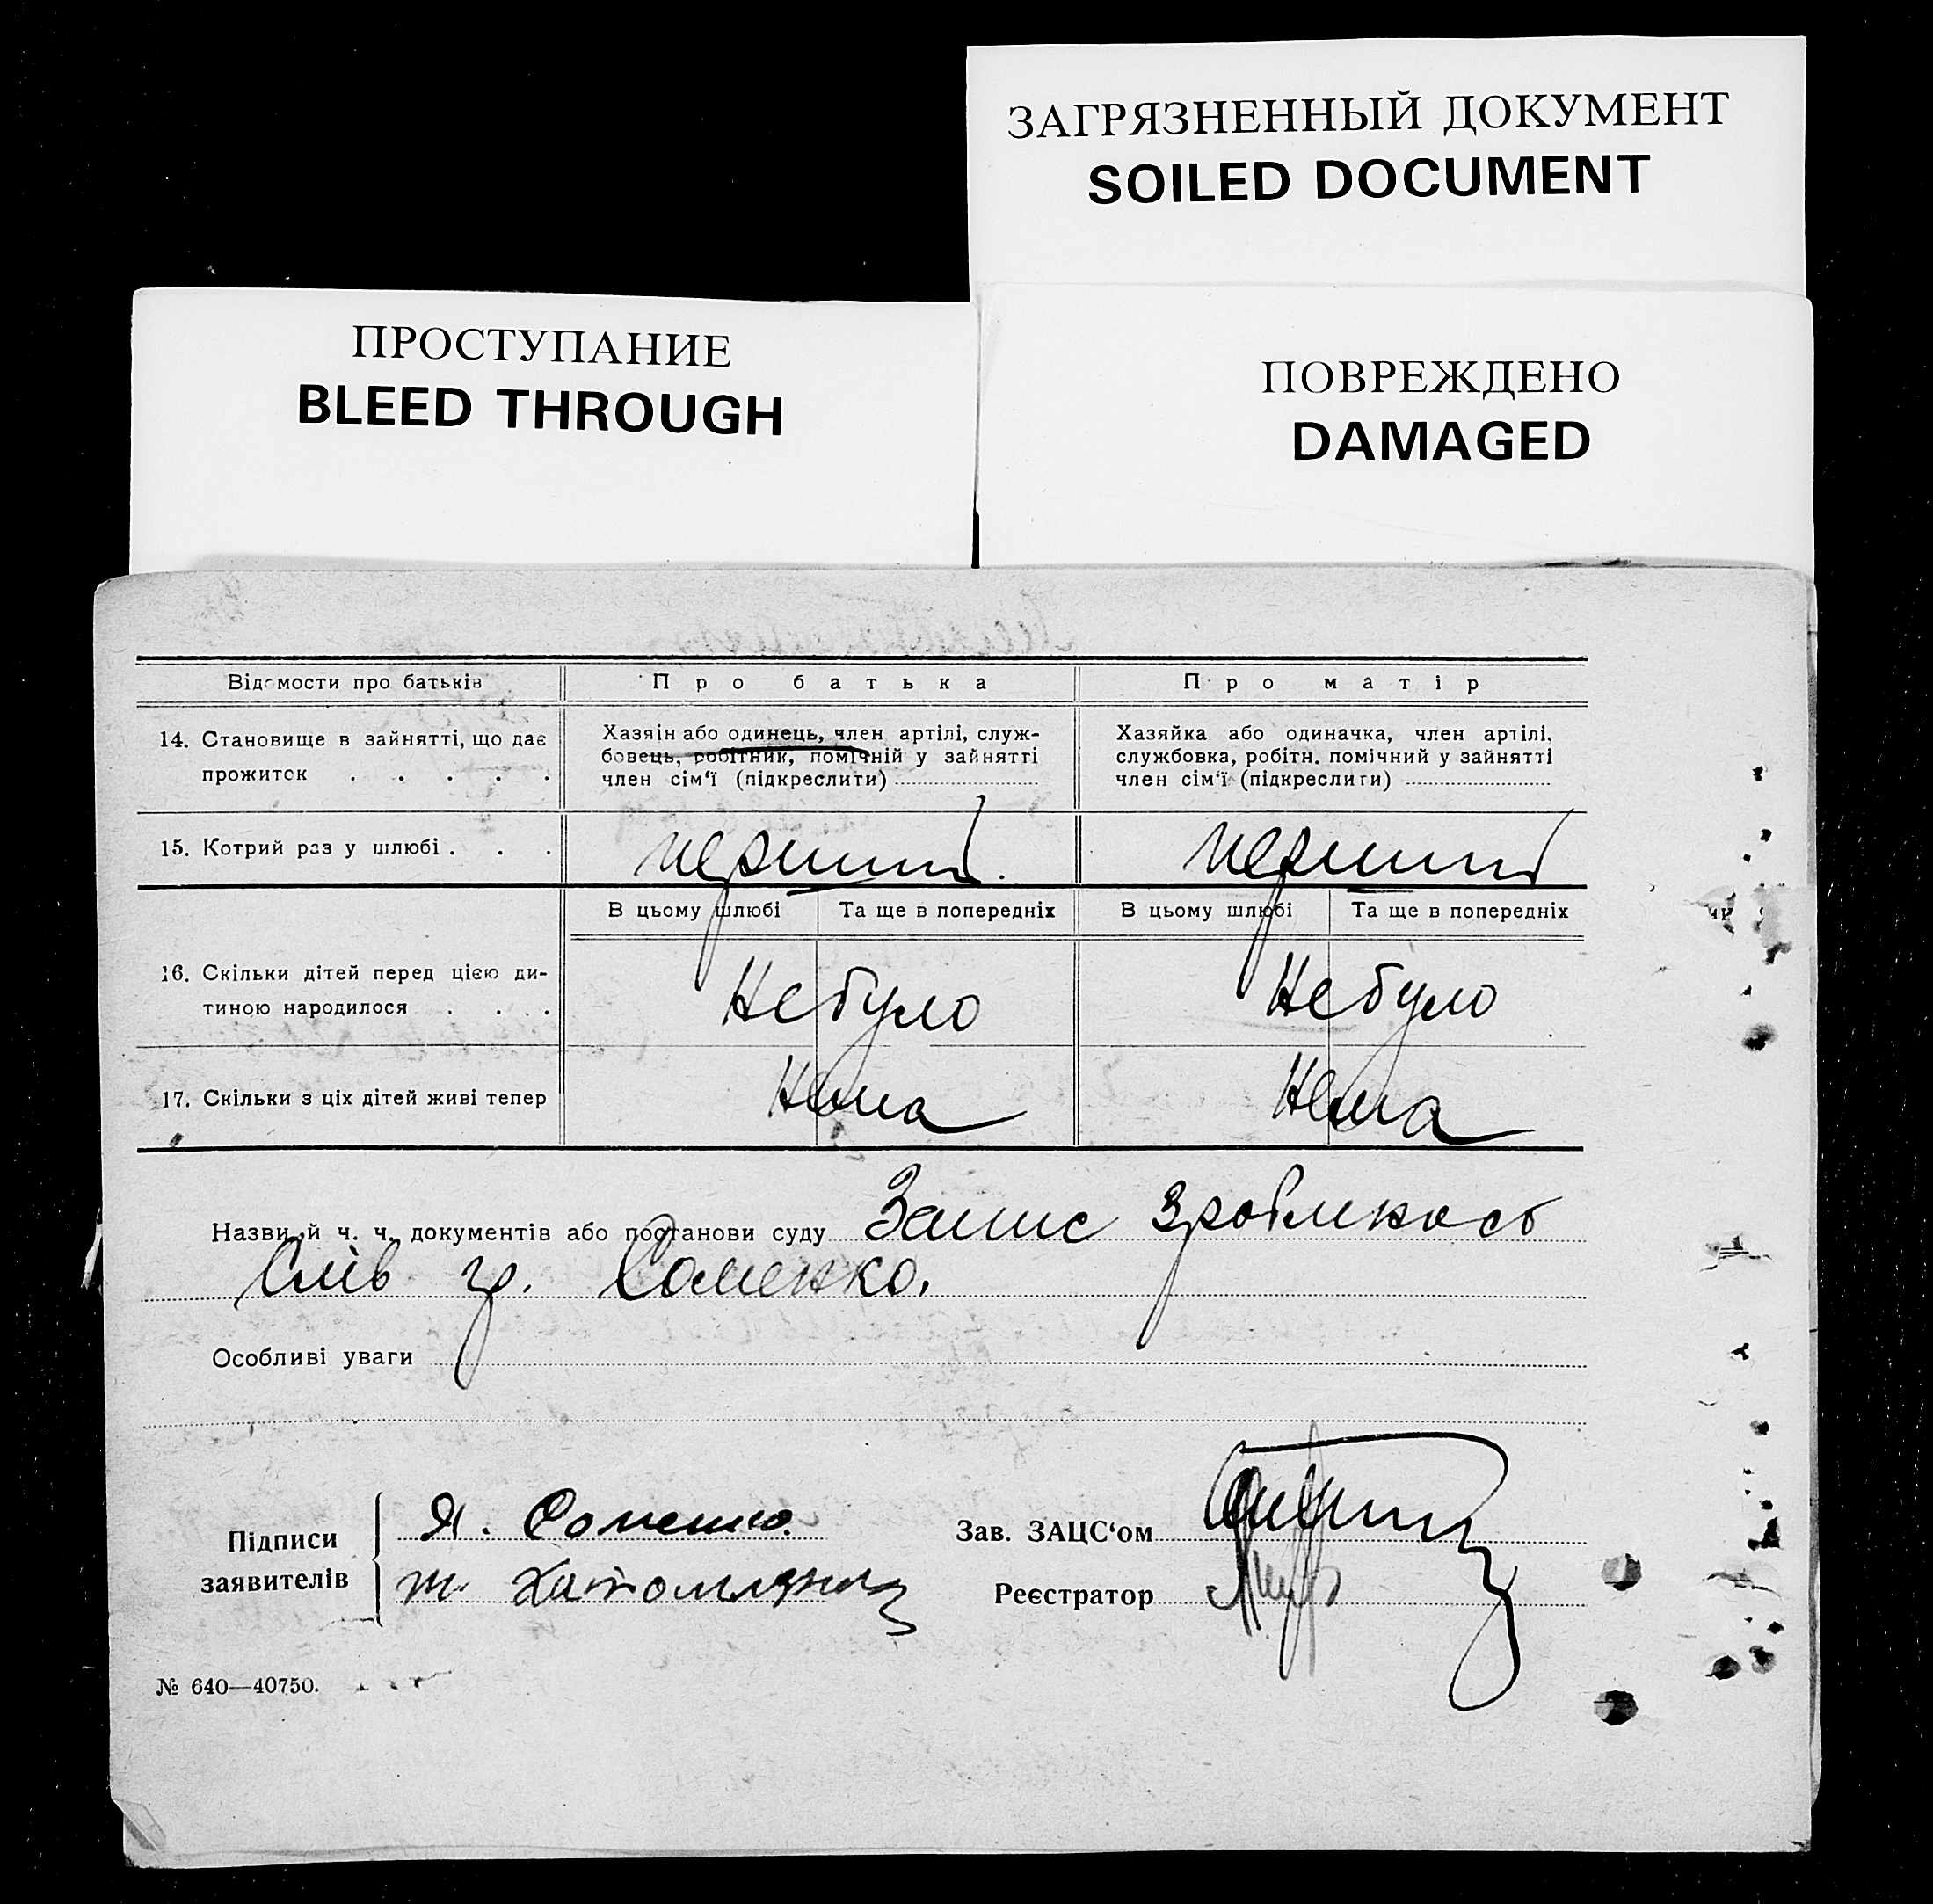 ЗАГРЯЗНЕННЫЙ ДОКУМЕНТ
SOILED DOCUMENT
ПРОСТУПАНИЕ
BLEED THROUGH
ПОВРЕЖДЕНО
DAMAGED
Відомости про батьків
Про батька
Про матір
14. Становище в зайнятті, що дає
прожиток . . . . .
Хазяін або одинець, член артілі, служ-
бовець, робітник, помічній у зайнятті
член сім'ї (підкреслити)
Хазяйка або одиначка, член артілі,
службовка, робітн. помічний у зайнятті
член сім'ї (підкреслити)
15. Котрий раз у шлюбі . . .
перший.
перший
В цьому шлюбі
Та ще в попередніх
В цьому шлюбі
Та ще в попередніх
16. Скільки дітей перед цією ди-
тиною народилося . . . .
Небуло
Небуло
17. Скільки з ціх дітей живі тепер
Нема
Нема
Назви й ч. ч. документів або постанови суду Запис зроблено со
слів гр. Соменко.
Особливі уваги
Підписи
заявителів
Я. Соменко.
Зав. ЗАЦС'ом
Реєстратор
№ 640—40750.